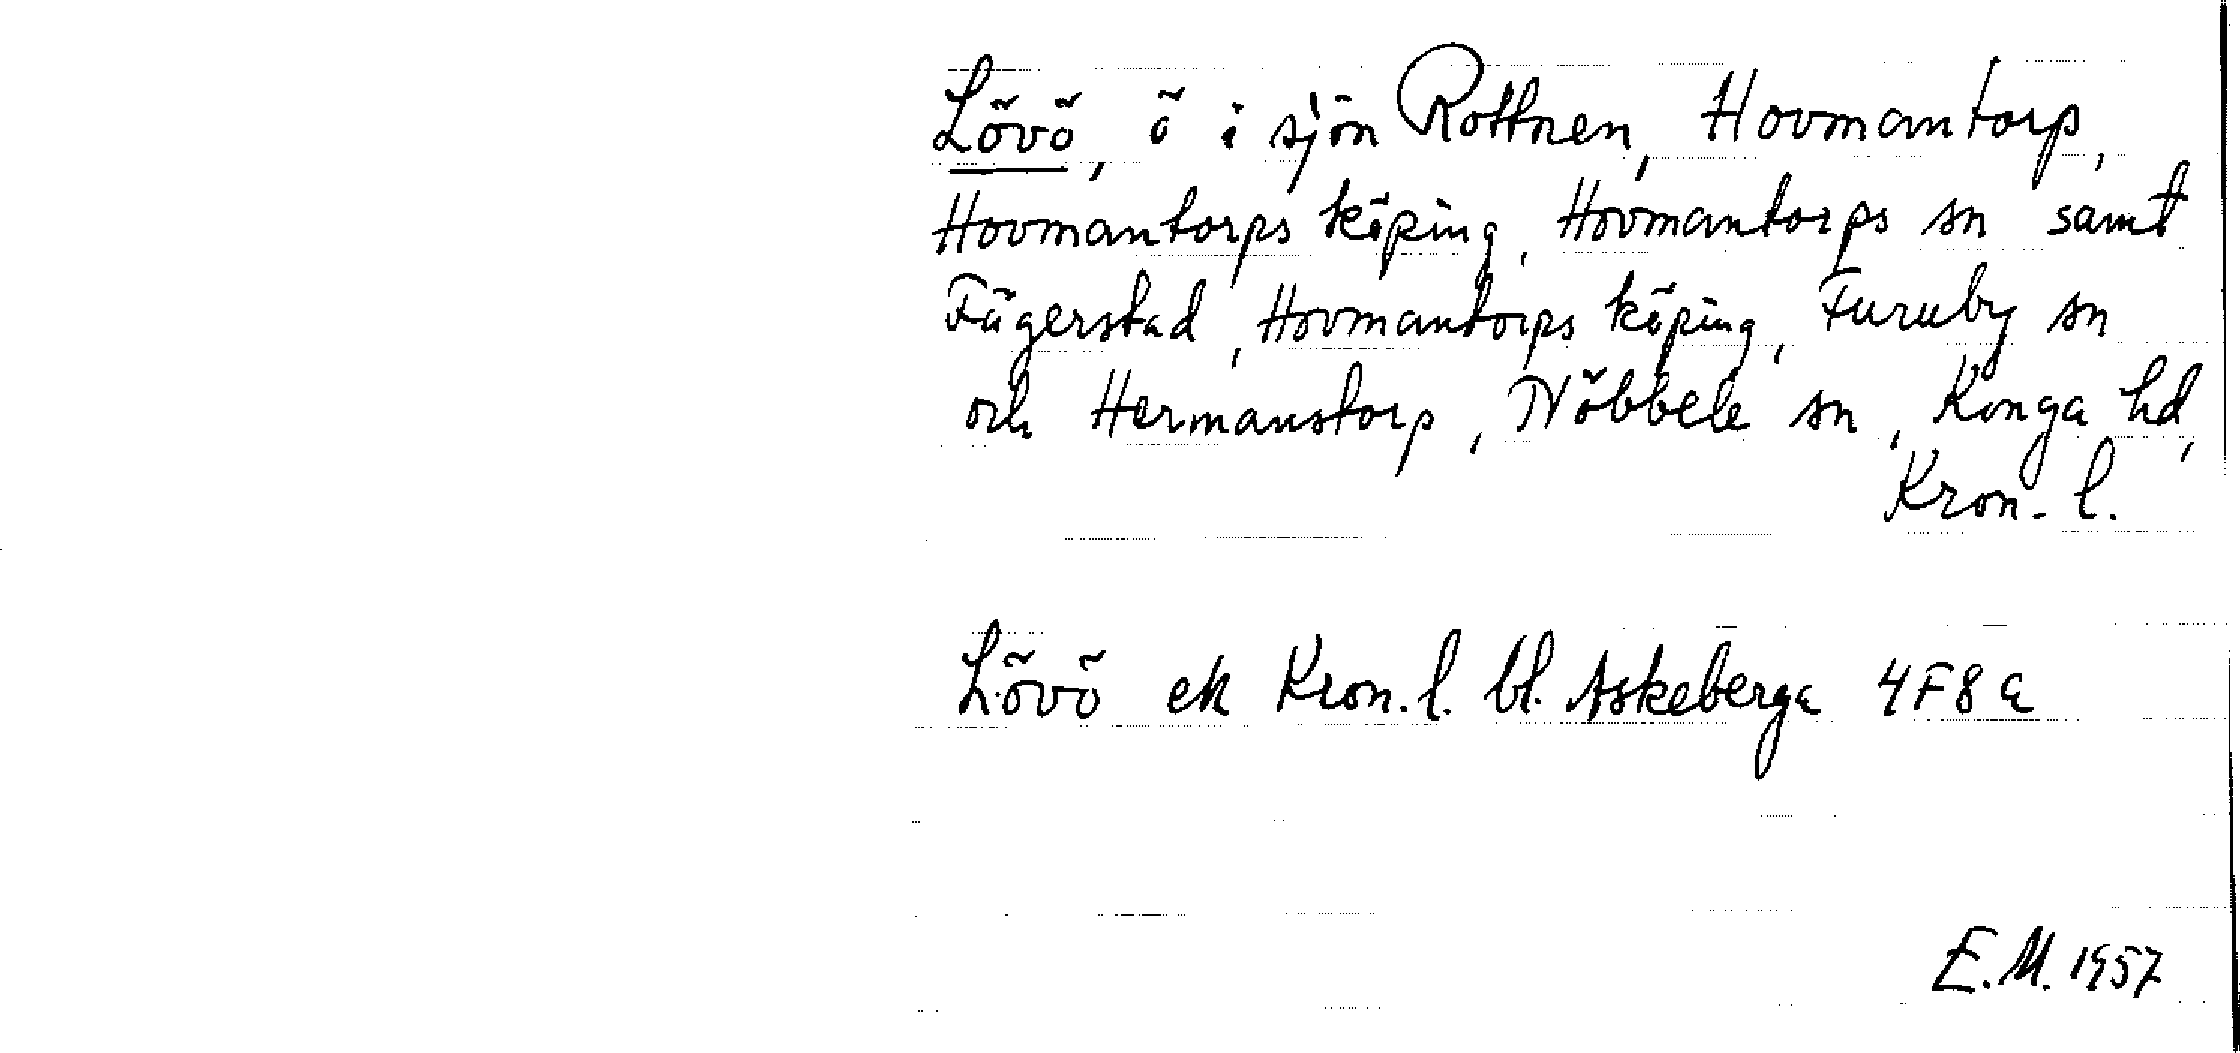 Lövö, ö i sjön Rottnen, Hovmantorp,
Hovmantorps köping, Hovmantorps sn samt
Fägerstad, Hovmantorps köping, Furuby sn
och Hermanstorp, Nöbbele sn, Konga hd,
Kron. l.
Lövö ek Kron. l. bl. Askeberga 4F8a
E.M. 1957